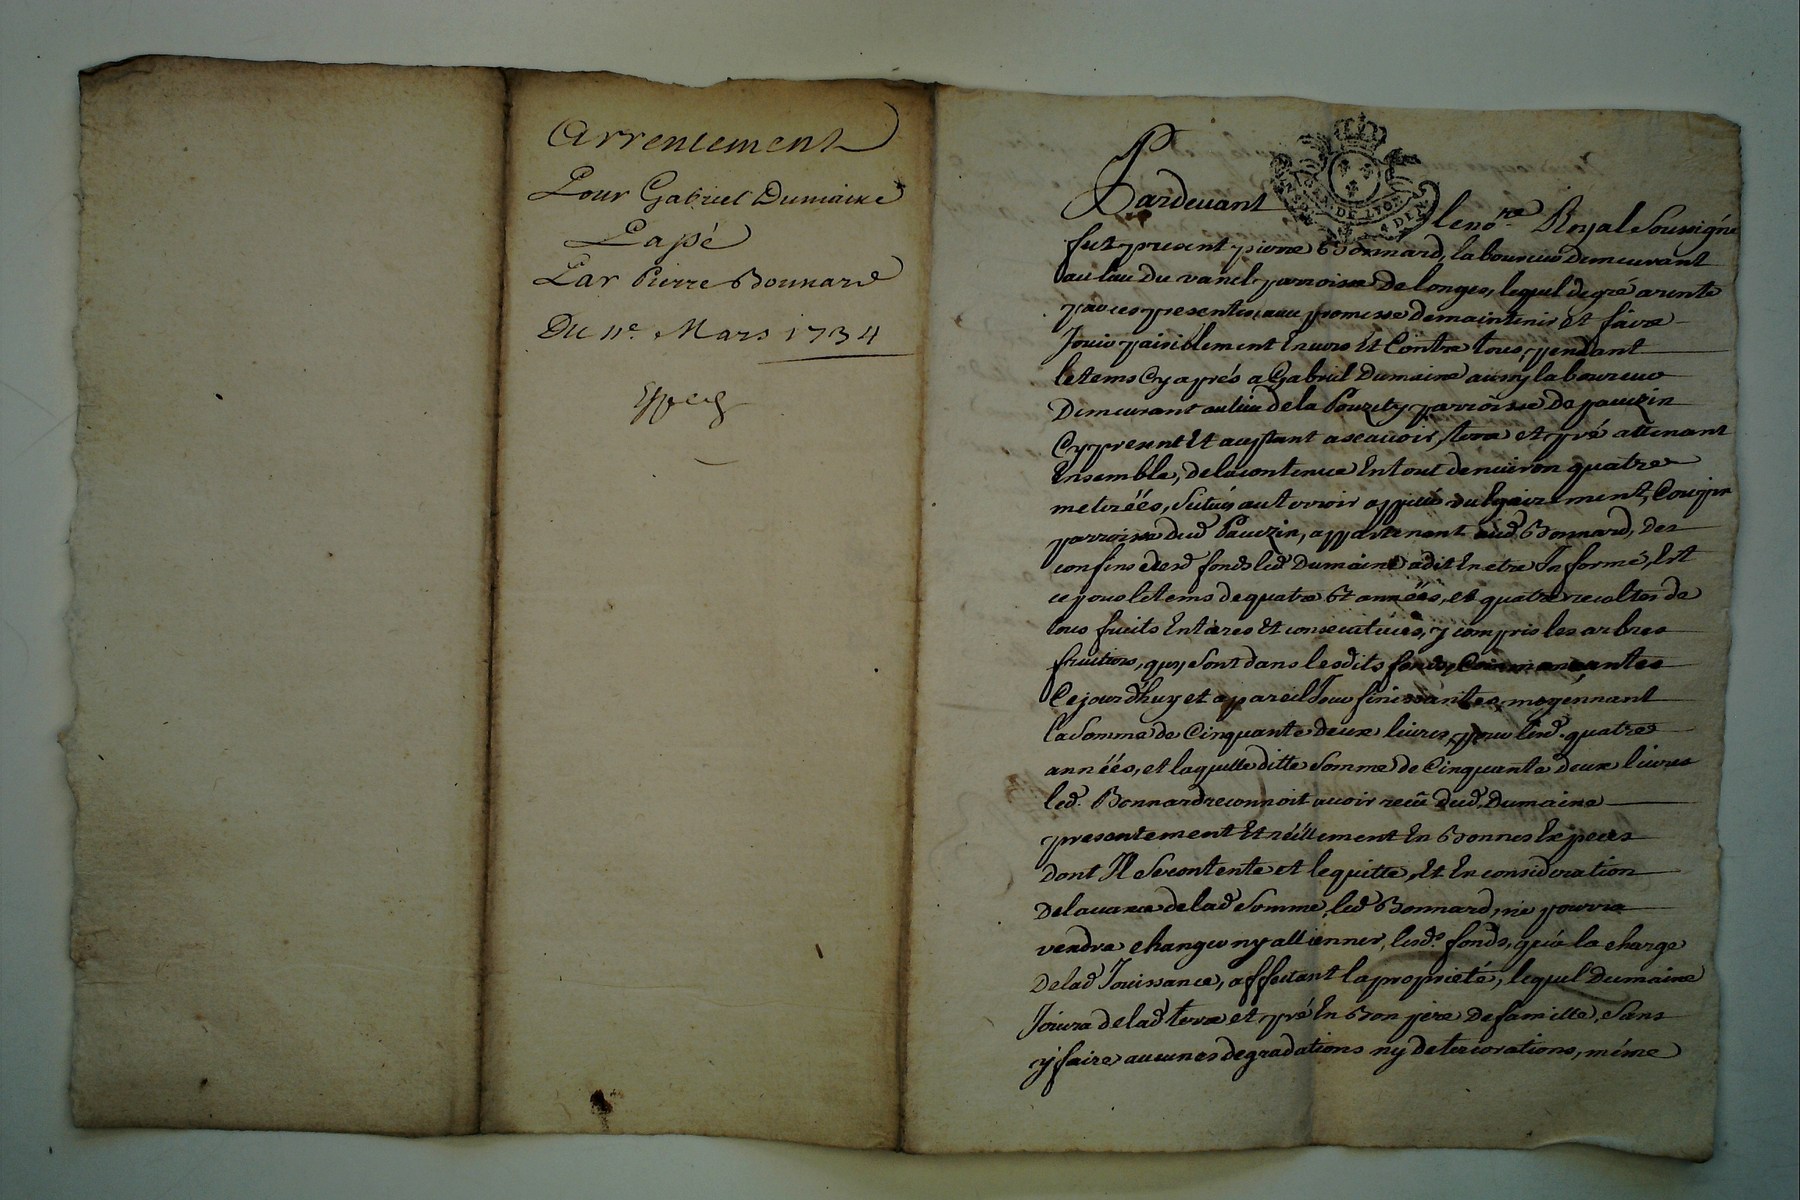 Arrentement
Pour Gabriel Dumaine
Passé
Par Pierre Bonnard
Du 11e. Mars 1734
GEN DE LYON
Pardevant le nore. Royal Soussigné
fut present pierre Bonnard, laboureur demeurant
au lieu du vanel parroisse de longes, lequel de gré arente
par ces presentes, avec promesse de maintenir et faire
Jouir paisiblement Envers Et Contre tous, pendant
le tems Cy aprés a Gabriel Dumaine aussy laboureur
Demeurant au lieu de la Pouzety parroisse de pavezin
Cy present Et acceptant a scavoir, terre et pré attenant
Ensemble, de la contenue En tout denviron quatre
metéréés, Situés au terroir appellé vulgairement,
parroisse dud Pavezin, appartenant aud Bonnard, des
confins desd fonds led Dumaine a dit En etre Informé, Et
ce pour le tems de quatre années, et quatre recoltes de
tous fruits Entieres Et consecutives, y compris les arbres
fruitiers, quy sont dans lesdits fonds, Commançantes
Cejourdhuy et a pareil Jour finissantes, moyennant
la Somme de Cinquante deux livres, pour lesd. quatre
années, et laquelle ditte Somme de Cinquante deux livres
led. Bonnard reconnoit avoir receu dud. Dumaine
presentement Et réellement En Bonnes Espèces
dont Il Se contente et le quitte, Et En consideration
De lavance de lad Somme, led Bonnard, ne pourra
vendre echanger ny alliener, lesds. fonds, qu'à la charge
De lad Jouissance, affectant la proprieté, lequel Dumaine
Jouira de lad terre et pré En Bon pere De famille, Sans
y faire aucunes degradations ny deteriorations, même